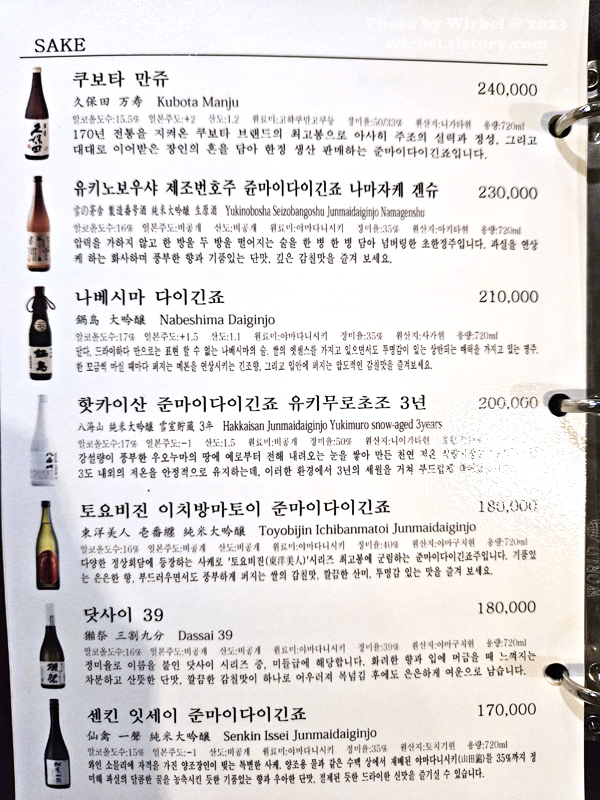 Photo by Wirbel @ 2023
wirbel.tistory.com
SAKE
쿠보타 만쥬
240,000
久保田 万寿 Kubota Manju
알코올도수:15.5% 일본주도:+2 산도:1.2 원료미:고햐쿠만고쿠등 정미율:50/33% 원산지:니가타현 용량:720ml
170년 전통을 지켜온 쿠보타 브랜드의 최고봉으로 아사히 주조의 실력과 정성, 그리고
대대로 이어받은 장인의 혼을 담아 한정 생산 판매하는 준마이다이긴죠입니다.
유키노보우샤 제조번호주 쥰마이다이긴죠 나마자케 겐슈
230,000
雪の茅舎 製造番号酒 純米大吟醸 生原酒 Yukinobosha Seizobangoshu Junmaidaiginjo Namagenshu
알코올도수:16% 일본주도:비공개 산도:비공개 원료미:야마다니시키 정미율:35% 원산지:아키타현 용량:720ml
압력을 가하지 않고 한 방울 두 방울 떨어지는 술을 한 병 한 병 담아 넘버링한 초한정주입니다. 과실을 연상
케 하는 화사하며 풍부한 향과 기품있는 단맛, 깊은 감칠맛을 즐겨 보세요.
나베시마 다이긴죠
210,000
鍋島 大吟醸 Nabeshima Daiginjo
알코올도수:17% 일본주도:+1.5 산도:1.1 원료미:야마다니시키 정미율:35% 원산지:사가현 용량:720ml
달다, 드라이하다 만으로는 표현 할 수 없는 나베시마의 술. 쌀의 엣센스를 가지고 있으면서도 투명감이 있는 상반되는 매력을 가지고 있는 명주.
한 모금씩 마실 때마다 퍼지는 메론을 연상시키는 긴조향, 그리고 입안에 퍼지는 압도적인 감칠맛을 즐겨보세요.
핫카이산 준마이다이긴죠 유키무로초조 3년
200,000
八海山 純米大吟醸 雪室貯蔵 3年 Hakkaisan Junmaidaiginjo Yukimuro snow-aged 3years
알코올도수:17% 일본주도:-1 산도:1.5 원료미:비공개 정미율:50% 원산지:니이가타현
강설량이 풍부한 우오누마의 땅에 예로부터 전해 내려오는 눈을 쌓아 만든 천연 저온
3도 내외의 저온을 안정적으로 유지하는데, 이러한 환경에서 3년의 세월을 거쳐 부드럽게
토요비진 이치방마토이 준마이다이긴죠
180,000
東洋美人 壱番纏 純米大吟醸 Toyobijin Ichibanmatoi Junmaidaiginjo
알코올도수:16% 일본주도:비공개 산도:비공개 원료미:야마다니시키 정미율:40% 원산지:야마구치현 용량:720ml
다양한 정상회담에 등장하는 사케로 '토요비진(東洋美人)'시리즈 최고봉에 군림하는 준마이다이긴죠주입니다. 기품있
는 은은한 향, 부드러우면서도 풍부하게 퍼지는 쌀의 감칠맛, 깔끔한 산미, 투명감 있는 맛을 즐겨 보세요.
닷사이 39
180,000
獺祭 三割九分 Dassai 39
알코올도수:16% 일본주도:비공개 산도:비공개 원료미:야마다니시키 정미율:39% 원산지:야마구치현 용량:720ml
정미율로 이름을 붙인 닷사이 시리즈 중, 미들급에 해당합니다. 화려한 향과 입에 머금을 때 느껴지는
차분하고 산뜻한 단맛, 깔끔한 감칠맛이 하나로 어우러져 목넘김 후에도 은은하게 여운으로 남습니다.
센킨 잇세이 준마이다이긴죠
170,000
仙禽 一聲 純米大吟醸 Senkin Issei Junmaidaiginjo
알코올도수:15% 일본주도:-1 산도:비공개 원료미:야마다니시키 정미율:35% 원산지:토치기현 용량:720ml
와인 소믈리에 자격을 가진 양조장인이 빚는 특별한 사케. 양조용 물과 같은 수맥 상에서 재배된 야마다니시키(山田錦)를 35%까지 정
미해 과실의 달콤한 꿀을 농축시킨 듯한 기품있는 향과 우아한 단맛, 절제된 듯한 드라이한 신맛을 즐기실 수 있습니다.